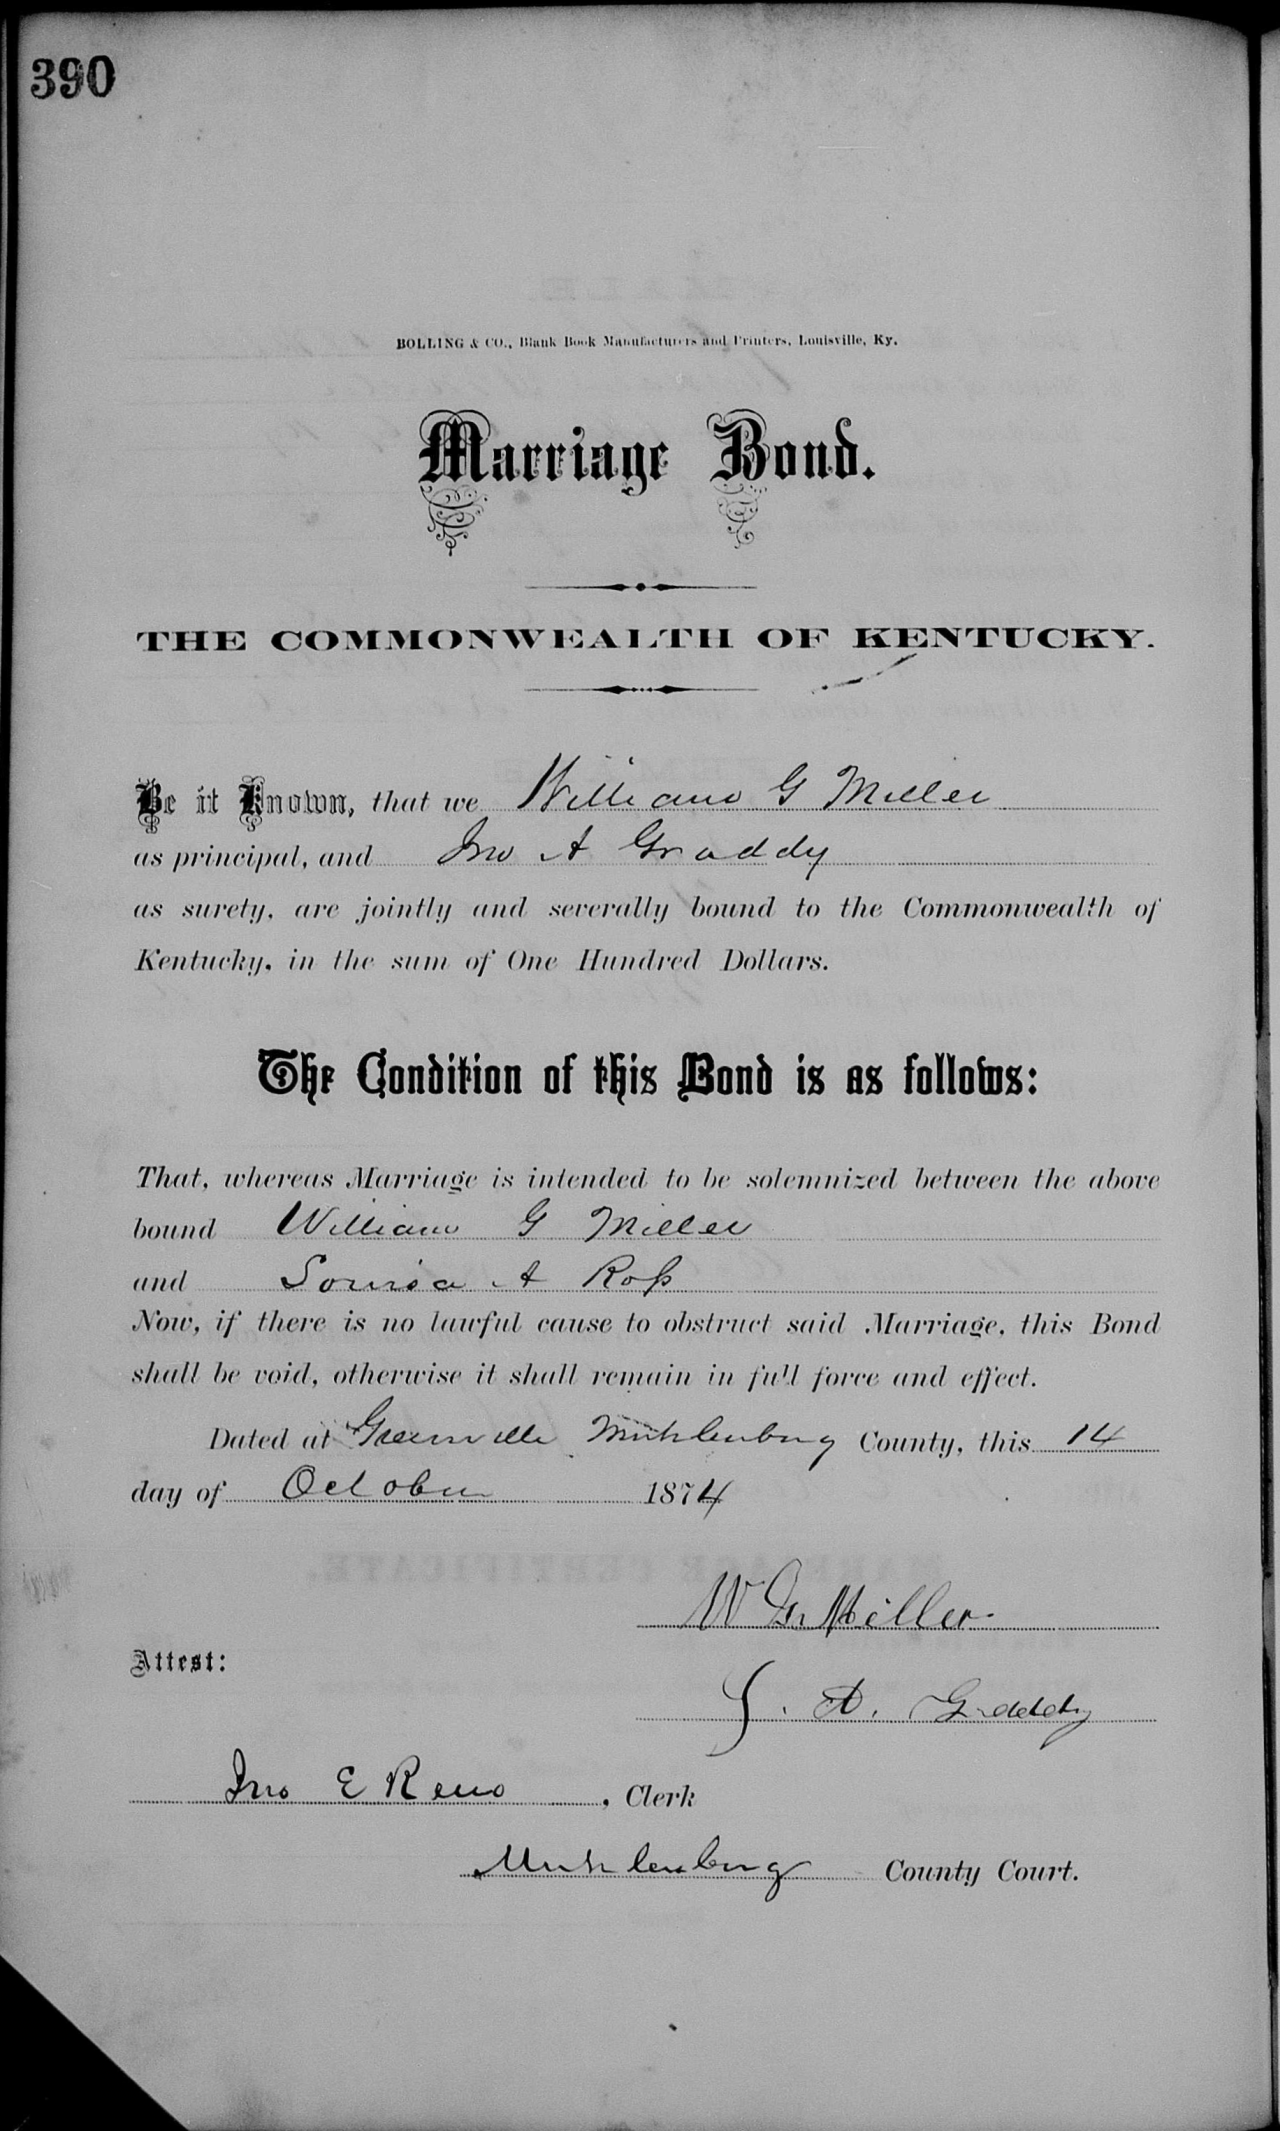 390
BOLLING & CO., Blank Book Manufacturers and Printers, Louisville, Ky.
Marriage Bond.
THE COMMONWEALTH OF KENTUCKY.
Be it Known, that we William G Miller
as principal, and Jno A Graddy
as surety, are jointly and severally bound to the Commonwealth of
Kentucky, in the sum of One Hundred Dollars.
The Condition of this Bond is as follows:
That, whereas Marriage is intended to be solemnized between the above
bound William G Miller
and Louisa A Roſs
Now, if there is no lawful cause to obstruct said Marriage, this Bond
shall be void, otherwise it shall remain in full force and effect.
Dated at Greenville Muhlenburg County, this 14
day of October 1874
W G. Miller
Attest:
J. A. Graddy
Jno E Reno, Clerk
Muhlenburg County Court.